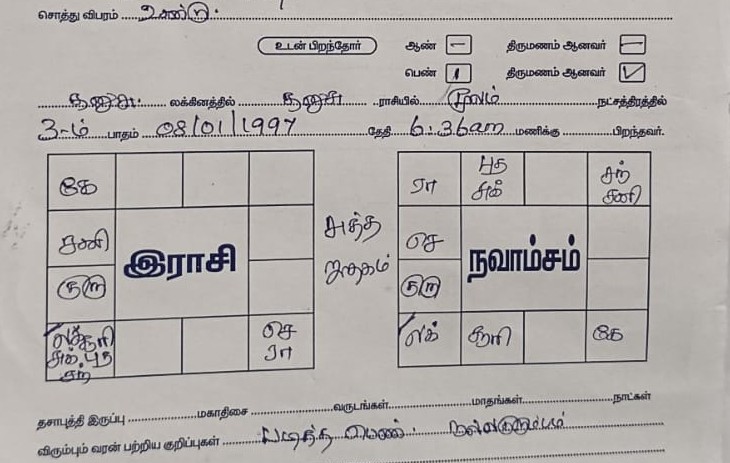 சொத்து விபரம் உண்டு.
உடன் பிறந்தோர் ஆண் - திருமணம் ஆனவர் -
பெண் 1 திருமணம் ஆனவர் ✓
தனுசு லக்கினத்தில் தனுசு ராசியில் மூலம் நட்சத்திரத்தில்
3-ம் பாதம் 08/01/1997 தேதி 6:36am மணிக்கு பிறந்தவர்.
கே
சனி
குரு
இராசி
ல சூரி
சுக் புத
சந்
செ
ரா
சுத்த
ஜாதகம்
ரா
புத
சுக்
சந்
சனி
செ
குரு
நவாம்சம்
லக்
சூரி
கே
தசாபுத்தி இருப்பு மகாதிசை வருடங்கள் மாதங்கள் நாட்கள்
விரும்பும் வரன் பற்றிய குறிப்புகள் படித்த பெண். நல்லகுடும்பம்